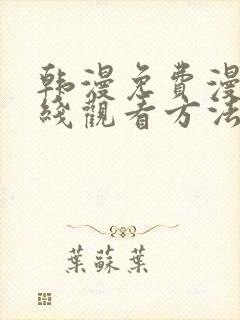 韩漫免費漫
綫觀看方法
葉蘇葉